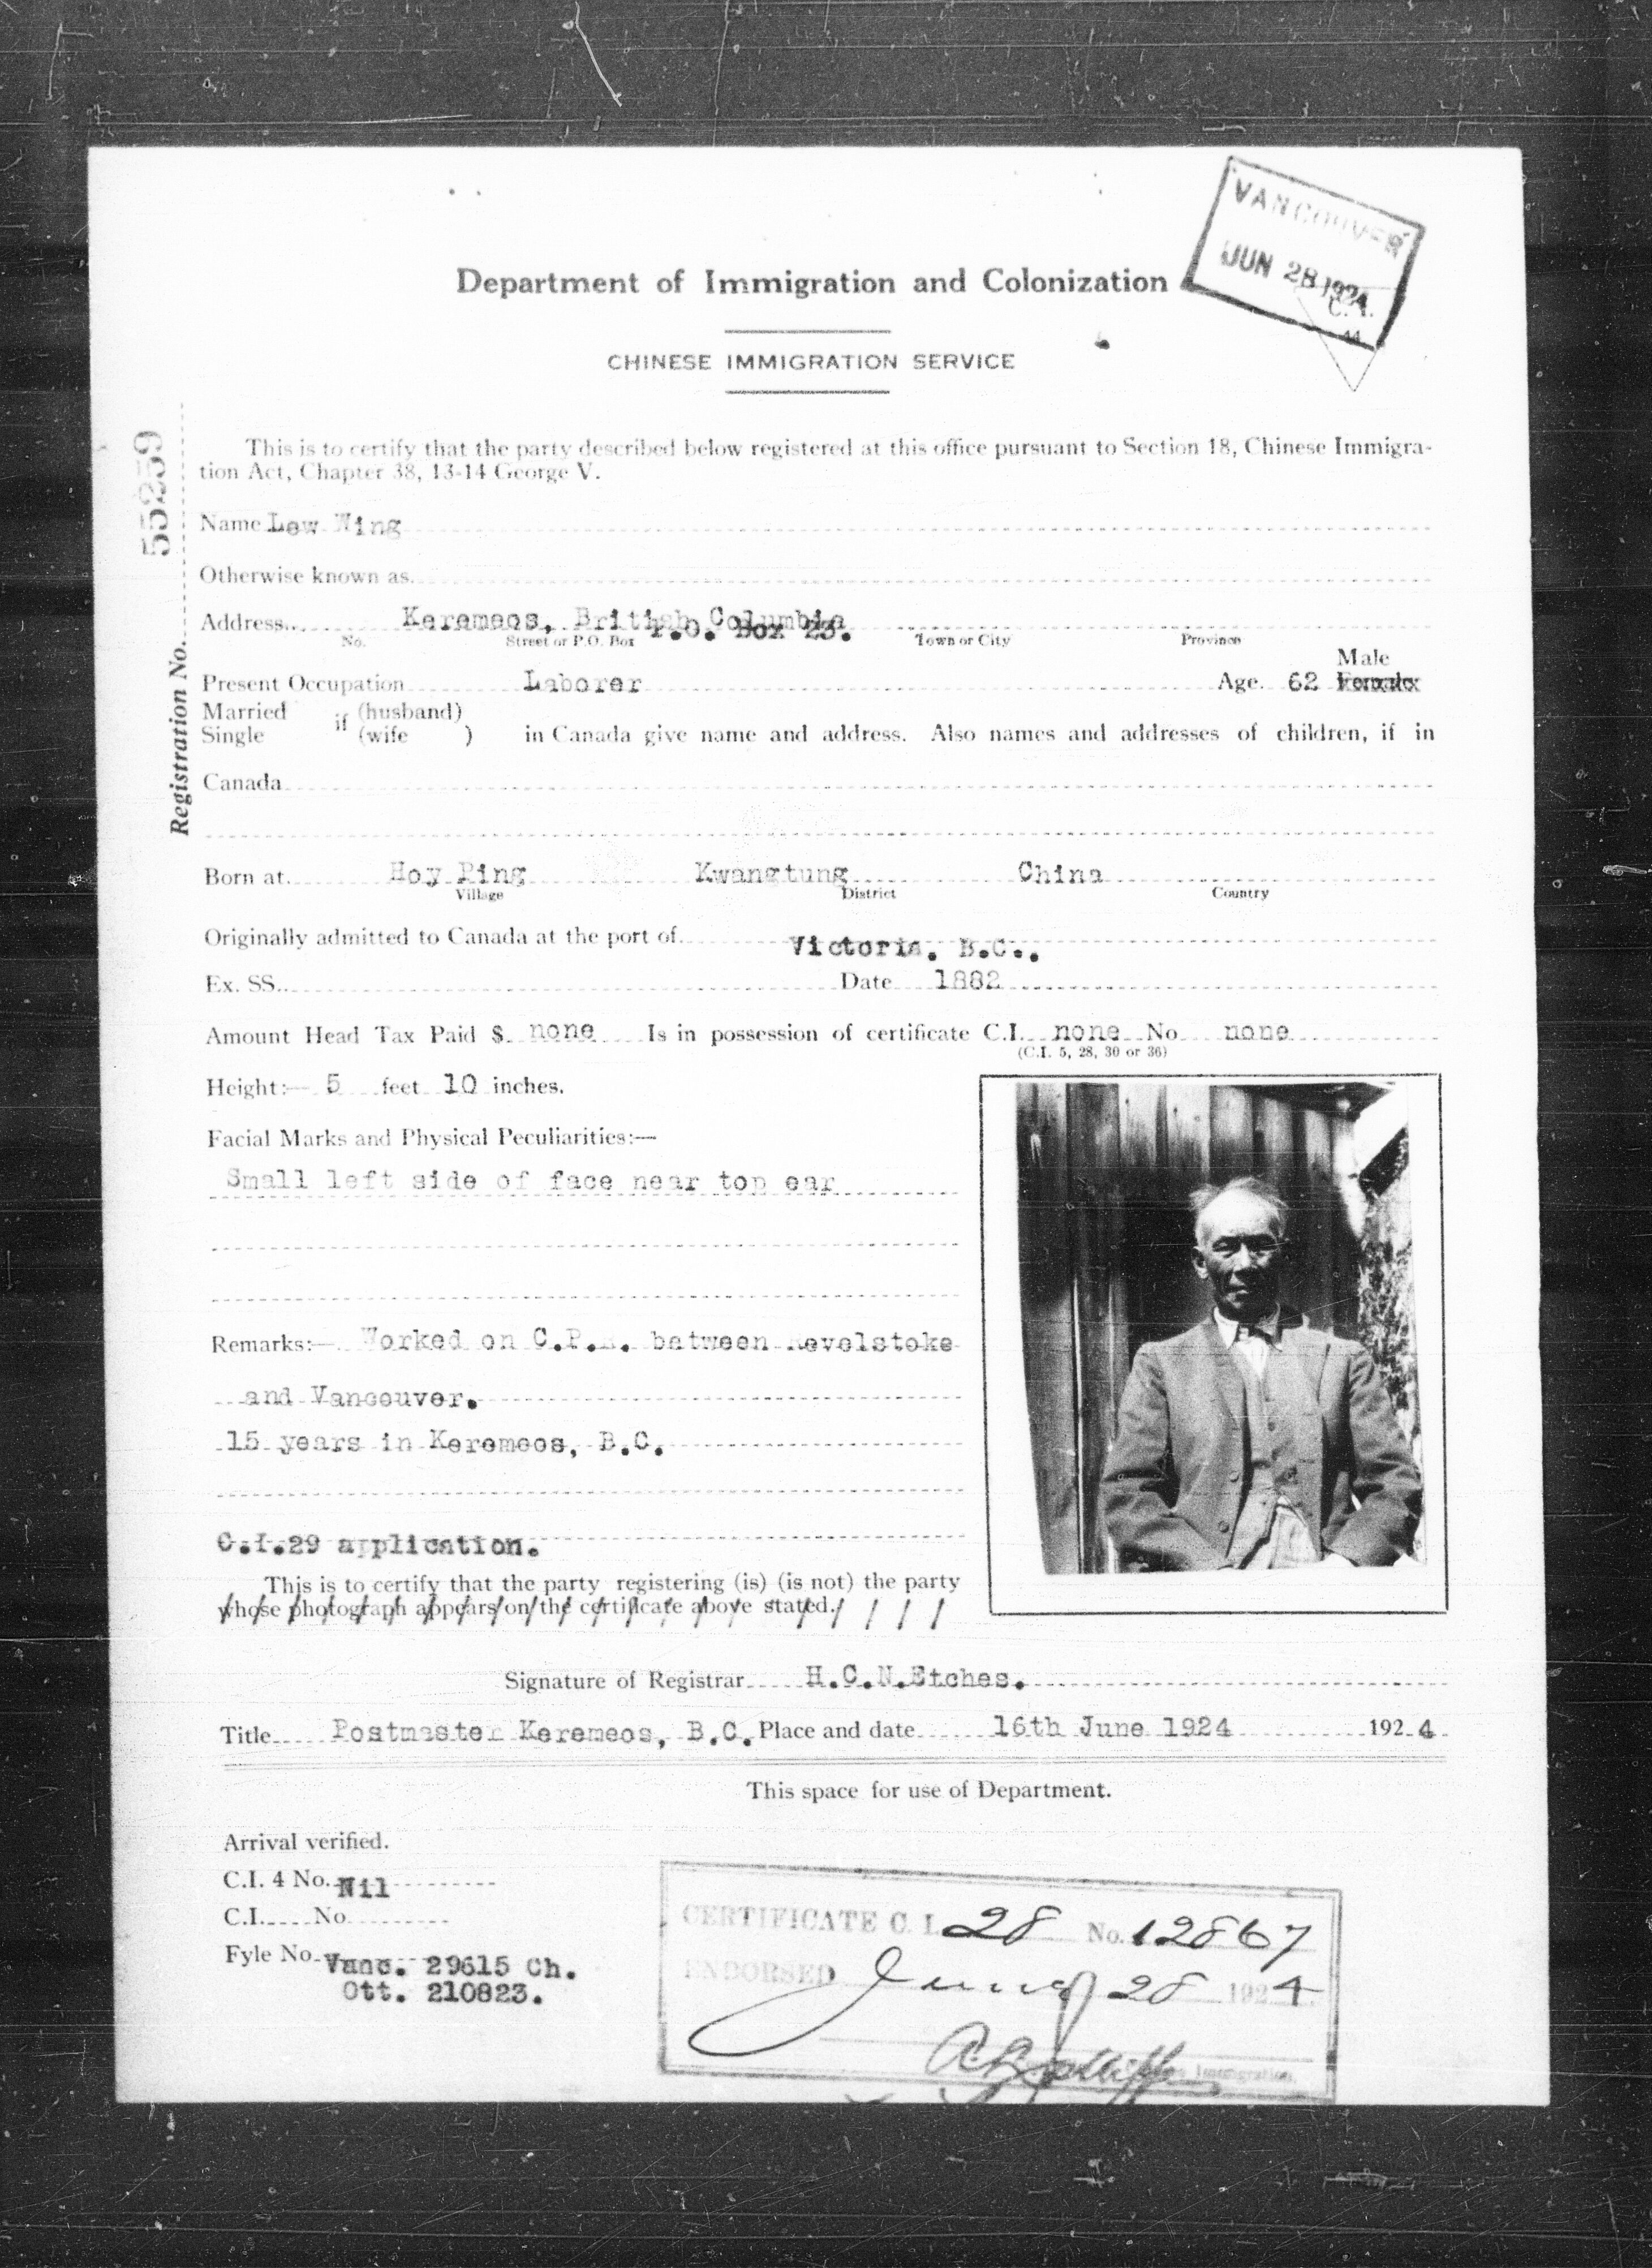 VANCOUVER
JUN 28 1924
C. I.
44
Department of Immigration and Colonization
CHINESE IMMIGRATION SERVICE
This is to certify that the party described below registered at this office pursuant to Section 18, Chinese Immigra-
tion Act, Chapter 38, 13-14 George V.
Registration No. 55259
Name Lew Wing
Otherwise known as
Address Keremeos, British Columbia
P.O. Box 23.
No. Street or P.O. Box Town or City Province
Male
Present Occupation Laborer Age 62 Female
Married if (husband)
Single (wife ) in Canada give name and address. Also names and addresses of children, if in
Canada
Born at Hoy Ping Kwangtung China
Village District Country
Originally admitted to Canada at the port of Victoria. B.C..
Ex. SS. Date 1882
Amount Head Tax Paid $ none Is in possession of certificate C.I. none No none
(C.I. 5, 28, 30 or 36)
Height:— 5 feet 10 inches.
Facial Marks and Physical Peculiarities:—
Small left side of face near top ear
Remarks:— Worked on C.P.R. between Revelstoke
and Vancouver.
15 years in Keremeos, B.C.
C.I.29 application.
This is to certify that the party registering (is) (is not) the party
whose photograph appears on the certificate above stated.
Signature of Registrar H.C.N.Etches.
Title Postmaster Keremeos, B.C. Place and date 16th June 1924 1924
This space for use of Department.
Arrival verified.
C.I. 4 No. Nil
C.I. No
Fyle No. Vanc. 29615 Ch.
Ott. 210823.
CERTIFICATE C. I. 28 No. 12867
ENDORSED June 28 1924
Immigration.